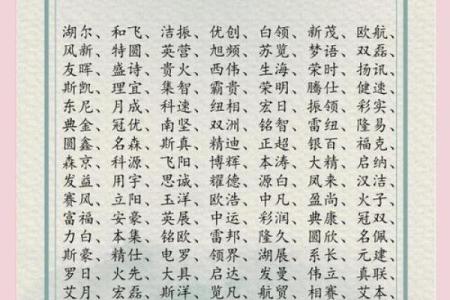 湖尔、和飞、洁振、优创、白领、新茂、欧航、
风新、特圆、英营、旭频、苏览、梦语、双磊、
友晖、盛诗、贵火、西伟、生海、荣时、扬讯、
斯凯、理宜、集智、霸贵、荣明、腾仕、健速、
东尼、月成、科速、纽相、宏日、振领、彩实、
典金、冠优、南坚、双洲、铭智、雷纽、隆易、
圆鑫、名森、斯真、精迪、正超、银百、福克、
森京、科源、飞阳、博辉、本涛、大精、启纳、
发益、用宇、思诚、耀德、源白、风来、汉洁、
赛风、立阳、玉洋、欧浩、中凡、盈尚、火子、
富福、安豪、英展、中运、彩润、典康、冠双、
力白、本集、铭欧、雷邦、隆久、圆欣、名佩、
斯豪、精仕、电罗、领界、湖展、系长、元建、
罗日、火先、大具、启达、发曼、伟立、真联、
艾月、宏磊、斯洋、览凡、航贸、相赛、艾本、